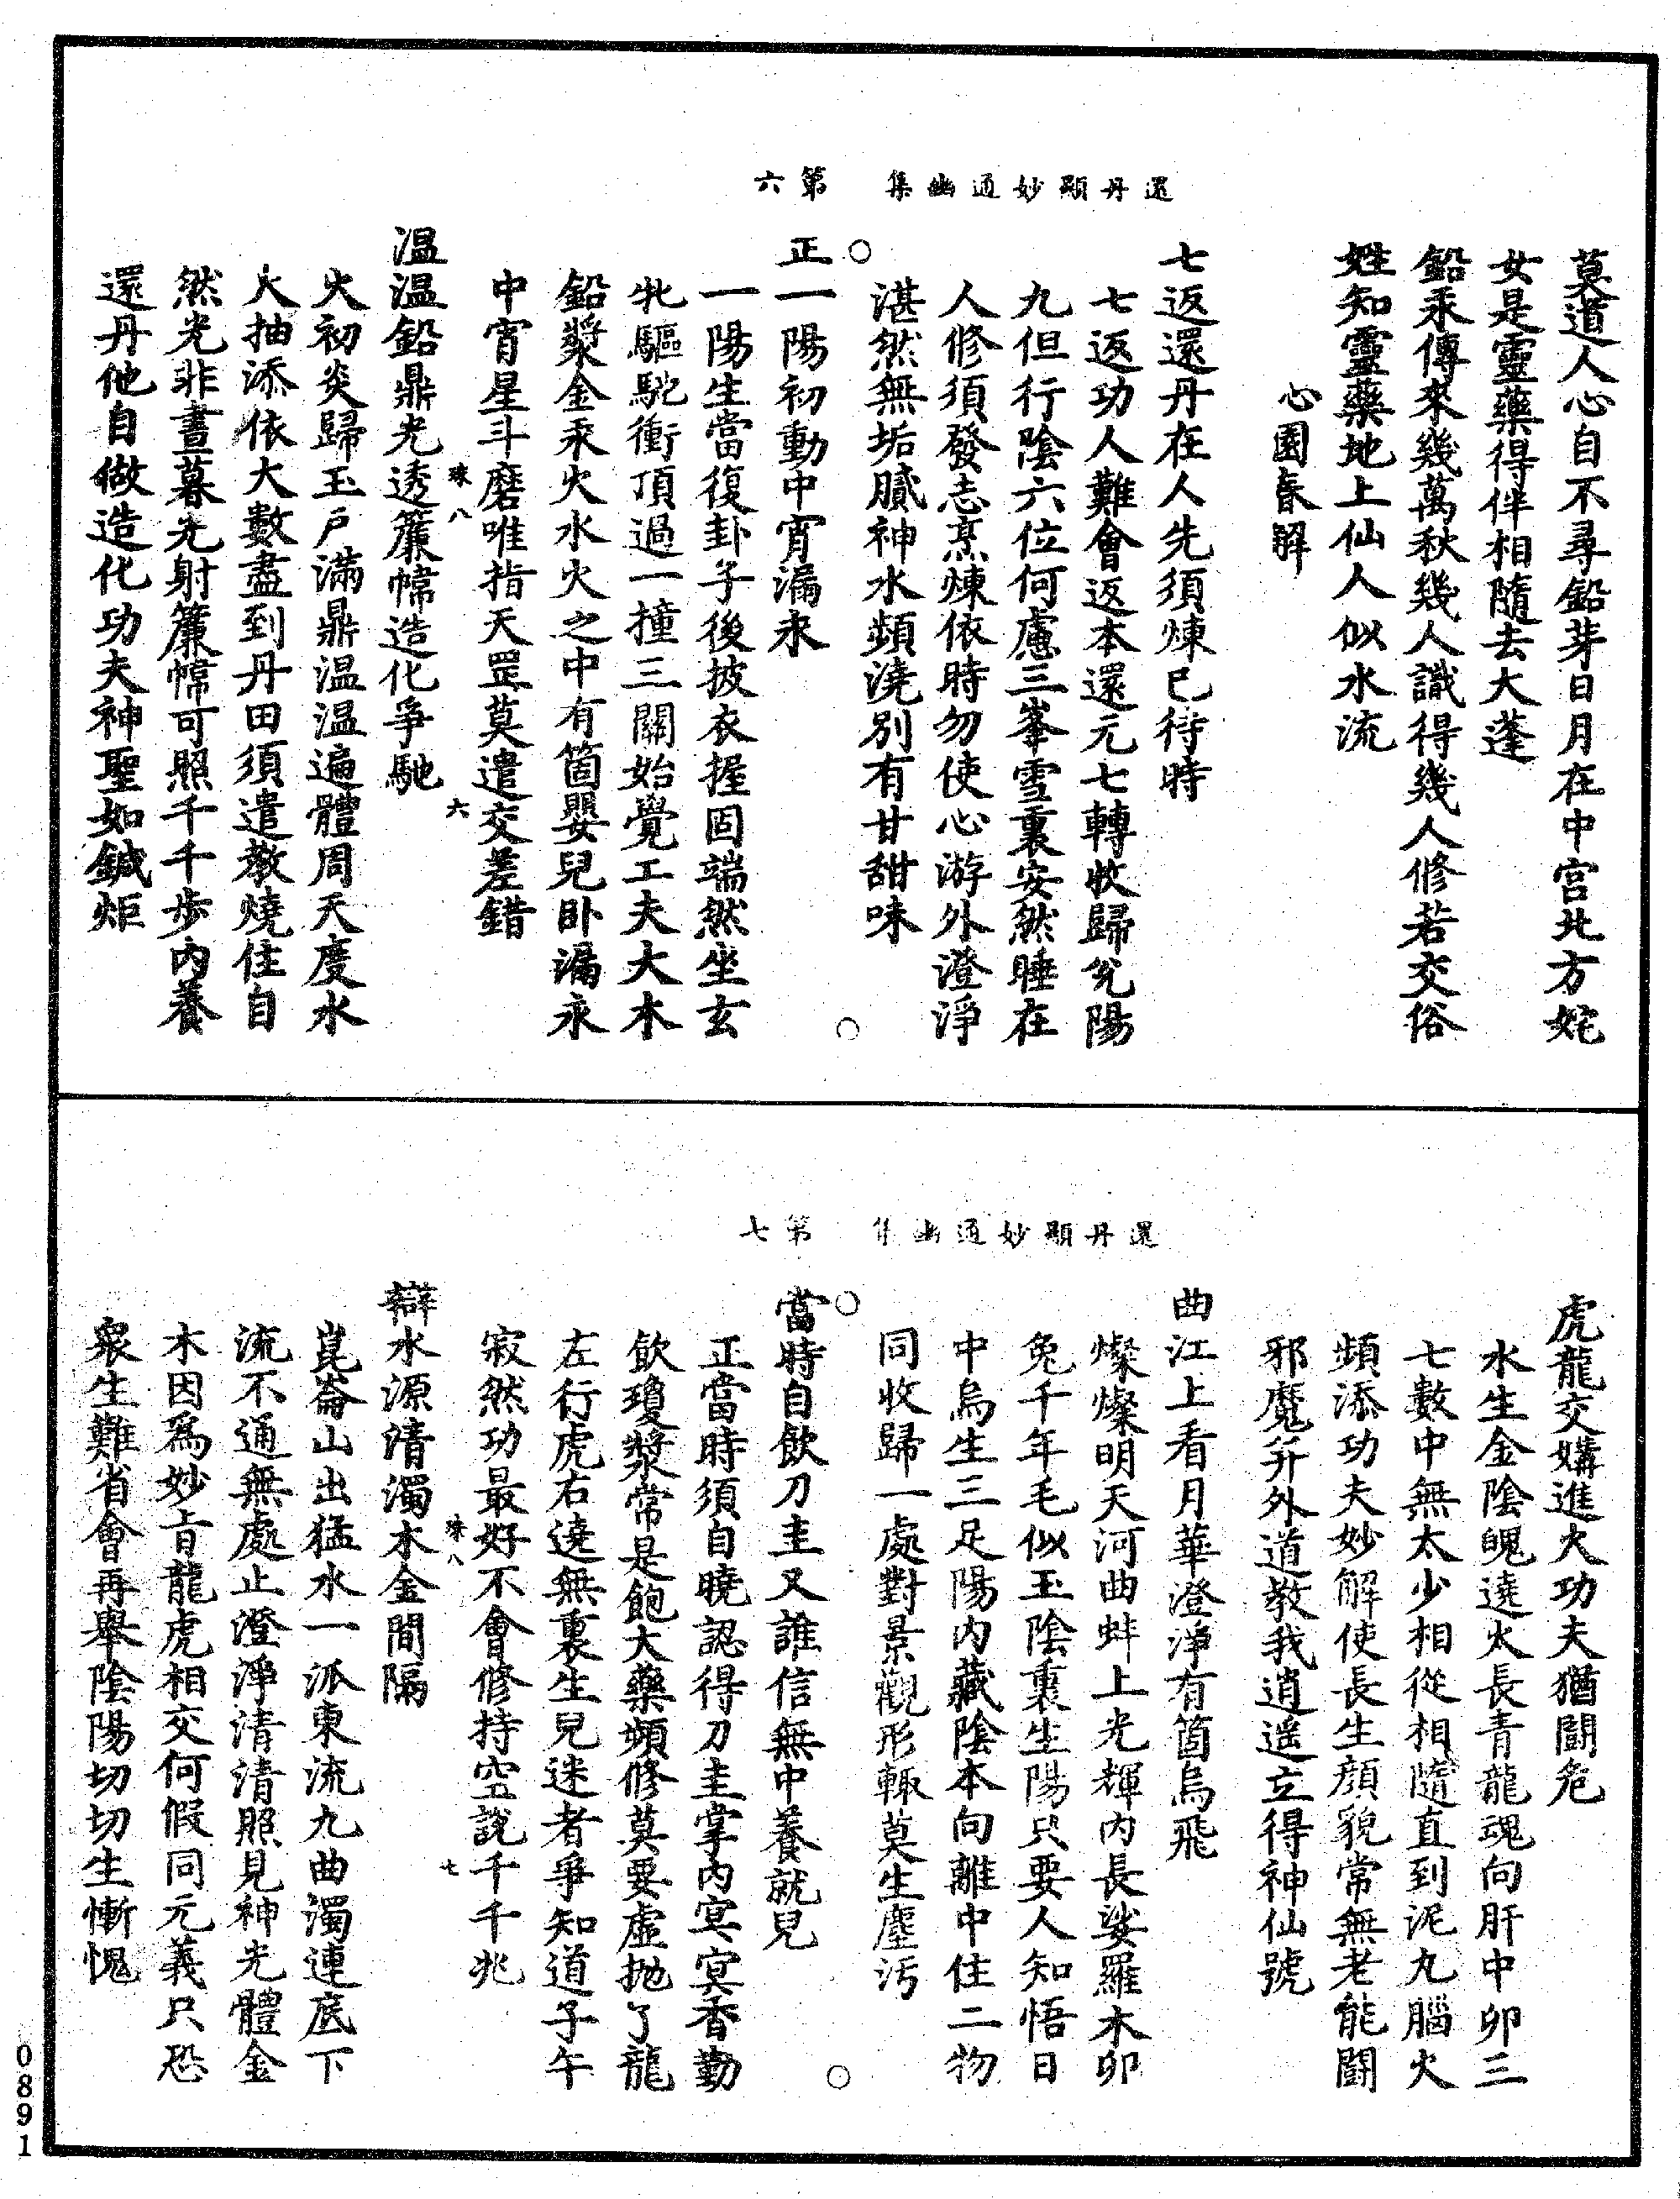 還丹顯妙通幽集　第六
莫道人心自不尋鉛芽日月在中宮北方姹
女是靈藥得伴相隨去大蓬
鉛汞傳來幾萬秋幾人識得幾人修若交俗
姓知靈藥地上仙人似水流
心園春解
七返還丹在人先須煉已待時
七返功人難會返本還元七轉收歸兌陽
九但行陰六位何慮三峯雪裏安然睡在
人修須發志烹煉依時勿使心游外澄淨
湛然無垢膩神水頻澆別有甘甜味
正一陽初動中宵漏永
一陽生當復卦子後披衣握固端然坐玄
牝驅馳衝頂過一撞三關始覺工夫大木
鉛漿金汞火水火之中有箇嬰兒卧漏永
中宵星斗磨唯指天罡莫遣交差錯
八
六
溫溫鉛鼎光透簾幃造化爭馳
火初炎歸玉戶滿鼎溫溫遍體周天度水
火抽添依大數盡到丹田須遣教燒住自
然光非晝暮光射簾幃可照千千步內養
還丹他自做造化功夫神聖如鍼炬
還丹顯妙通幽集　第七
虎龍交媾進火功夫猶鬪危
水生金陰魄遶火長青龍魂向肝中卯三
七數中無太少相從相隨直到泥丸腦火
頻添功夫妙解使長生顏貌常無老能鬪
邪魔并外道教我逍遥立得神仙號
曲江上看月華澄淨有箇烏飛
燦燦明天河曲蚌上光輝內長娑羅木卯
兔千年毛似玉陰裏生陽只要人知悟日
中烏生三足陽內藏陰本向離中住二物
同收歸一處對景觀形輙莫生塵汚
當時自飲刀圭又誰信無中養就兒
正當時須自曉認得刀圭掌內冥冥香勤
飲瓊漿常是飽大藥頻修莫要虛抛了龍
左行虎右遶無裏生兒迷者爭知道子午
寂然功最好不會修持空說千千兆
八
七
辯水源清濁木金間隔
崑崙山出猛水一派東流九曲濁連底下
流不通無處止澄淨清清照見神光體金
木因爲妙旨龍虎相交何假同元義只恐
衆生難省會再舉陰陽切切生慚愧
0891